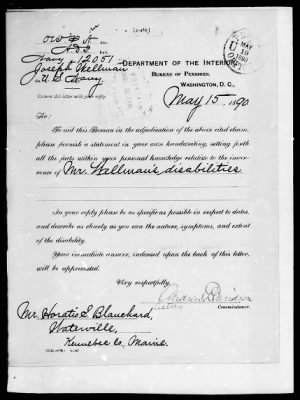 Navy-12051
Joseph Hellman
U.S. Navy
DEPARTMENT OF THE INTERIOR,
BUREAU OF PENSIONS,
WASHINGTON, D. C.,
Return this letter with your reply.
May 15 1890
MAY
19
1890
SIR:
To aid this Bureau in the adjudication of the above cited claim,
please furnish a statement in your own handwriting, setting forth
all the facts within your personal knowledge relative to the incur-
rence of Mr. Hellman's disabilities.
In your reply please be as specific as possible in respect to dates,
and describe as clearly as you can the nature, symptoms, and extent
of the disability.
Your immediate answer, indorsed upon the back of this letter,
will be appreciated.
Very respectfully,
Acting Commissioner.
Mr. Horatio E Blanchard,
Waterville,
Kennebec Co. Maine.